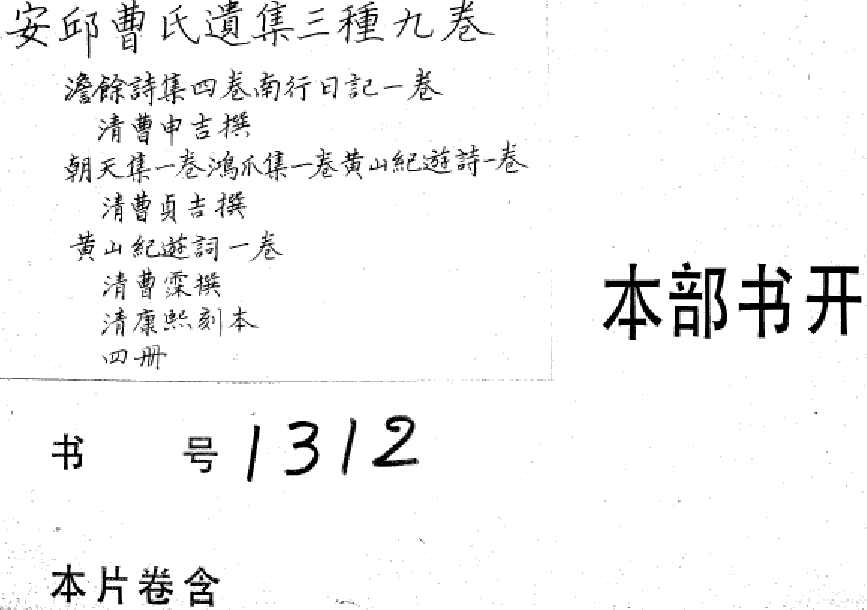 安邱曹氏遺集三種九卷
澹餘詩集四卷南行日記一卷
清曹申吉撰
朝天集一卷鴻爪集一卷黄山紀遊詩一卷
清曹貞吉撰
黄山紀遊詞一卷
清曹霂撰
清康熙刻本
四冊
本部书开
书 号 1312
本片卷含